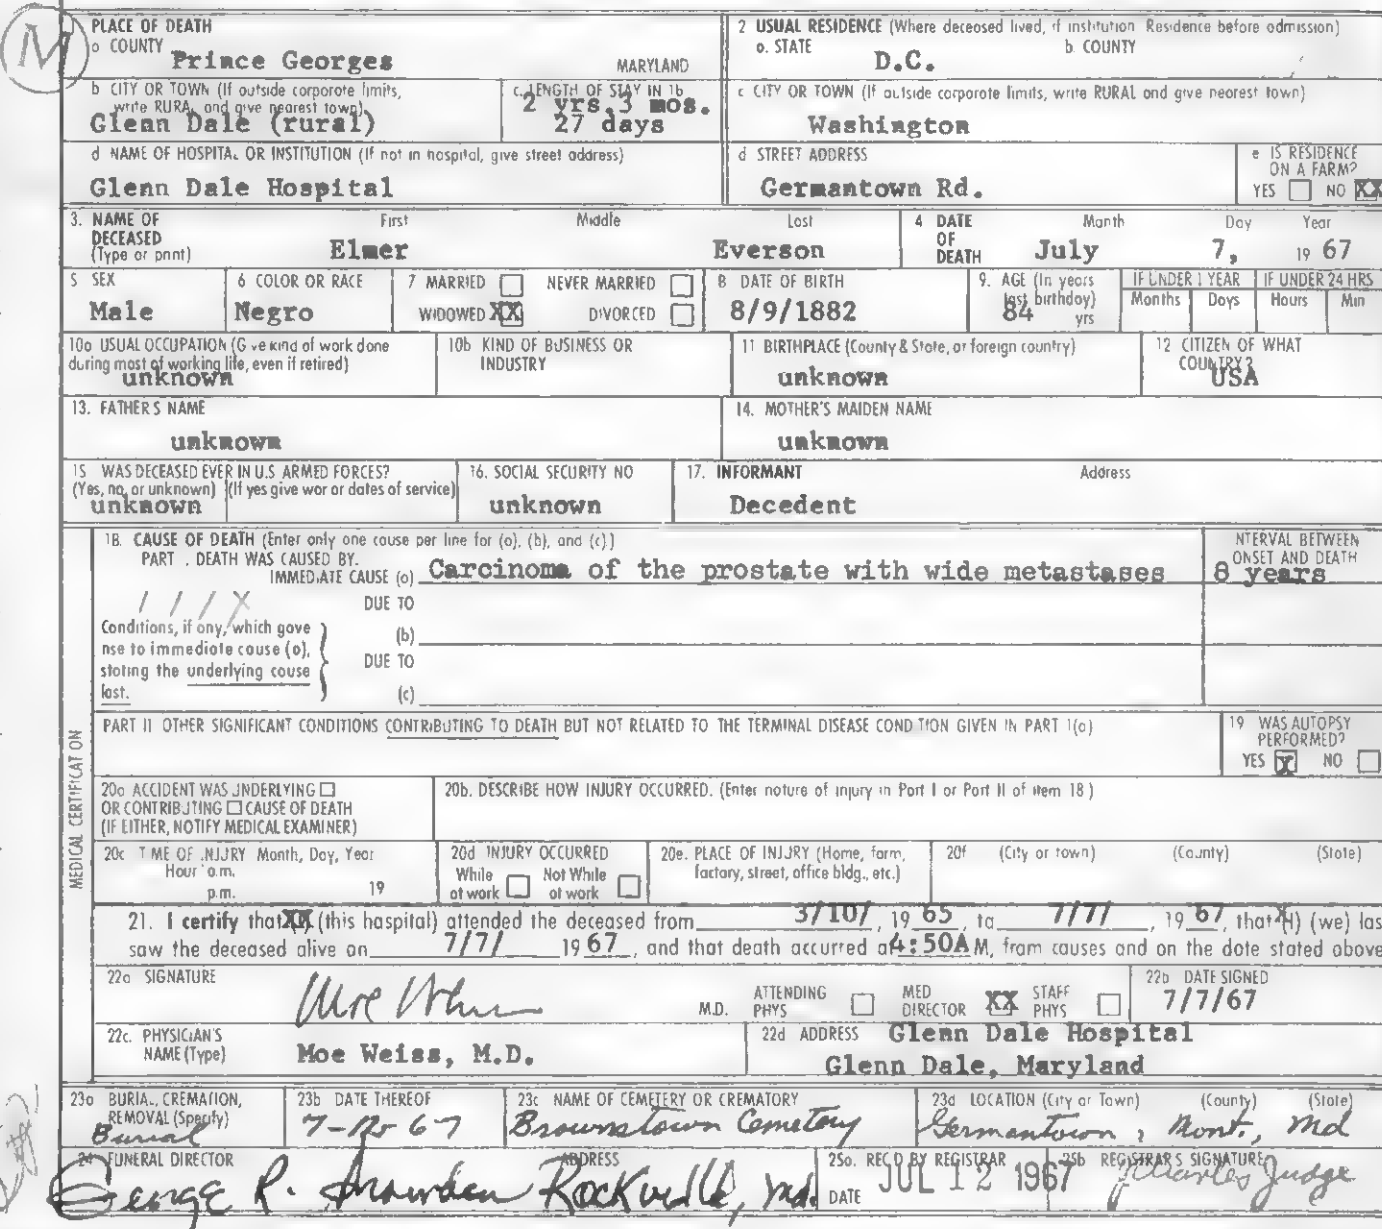 M
PLACE OF DEATH
a COUNTY Prince Georges MARYLAND
2 USUAL RESIDENCE (Where deceased lived, if institution Residence before admission)
a. STATE D.C. b. COUNTY
b CITY OR TOWN (If outside corporate limits, write RURAL and give nearest town)
Glenn Dale (rural)
c. LENGTH OF STAY IN 1b
2 yrs. 3 mos.
27 days
c CITY OR TOWN (If outside corporate limits, write RURAL and give nearest town)
Washington
d NAME OF HOSPITAL OR INSTITUTION (If not in hospital, give street address)
Glenn Dale Hospital
d STREET ADDRESS
Germantown Rd.
e IS RESIDENCE ON A FARM?
YES NO XX
3. NAME OF DECEASED (Type or print)
First Middle Last
Elmer Everson
4 DATE OF DEATH
Month Day Year
July 7, 19 67
5 SEX
Male
6 COLOR OR RACE
Negro
7 MARRIED NEVER MARRIED
WIDOWED XX DIVORCED
8 DATE OF BIRTH
8/9/1882
9. AGE (In years last birthday)
84 yrs
IF UNDER 1 YEAR
Months Days
IF UNDER 24 HRS
Hours Min
10a USUAL OCCUPATION (Give kind of work done during most of working life, even if retired)
unknown
10b KIND OF BUSINESS OR INDUSTRY
11 BIRTHPLACE (County & State, or foreign country)
unknown
12 CITIZEN OF WHAT COUNTRY?
USA
13. FATHER'S NAME
unknown
14. MOTHER'S MAIDEN NAME
unknown
15 WAS DECEASED EVER IN U.S ARMED FORCES?
(Yes, no, or unknown) (If yes give war or dates of service)
unknown
16. SOCIAL SECURITY NO
unknown
17. INFORMANT Address
Decedent
MEDICAL CERTIFICATION
18. CAUSE OF DEATH (Enter only one cause per line for (a), (b), and (c).)
PART . DEATH WAS CAUSED BY.
IMMEDIATE CAUSE (a) Carcinoma of the prostate with wide metastases
INTERVAL BETWEEN ONSET AND DEATH
8 years
1 1 1 X
Conditions, if any, which gave rise to immediate cause (a), stating the underlying cause last.
DUE TO
(b)
DUE TO
(c)
PART II OTHER SIGNIFICANT CONDITIONS CONTRIBUTING TO DEATH BUT NOT RELATED TO THE TERMINAL DISEASE CONDITION GIVEN IN PART 1(a)
19 WAS AUTOPSY PERFORMED?
YES X NO
20a ACCIDENT WAS UNDERLYING
OR CONTRIBUTING CAUSE OF DEATH
(IF EITHER, NOTIFY MEDICAL EXAMINER)
20b. DESCRIBE HOW INJURY OCCURRED. (Enter nature of injury in Part I or Part II of item 18)
20c TIME OF INJURY Month, Day, Year
Hour a.m.
p.m. 19
20d INJURY OCCURRED
While at work Not While at work
20e. PLACE OF INJURY (Home, farm, factory, street, office bldg., etc.)
20f (City or town) (County) (State)
21. I certify that XX (this hospital) attended the deceased from 3/10/, 19 65, to 7/7/, 19 67, that (I) (we) las
saw the deceased alive on 7/7/ 19 67, and that death occurred at 4:50A M, from causes and on the date stated above
22a SIGNATURE
Moe Weiss M.D.
ATTENDING PHYS MED DIRECTOR XX STAFF PHYS
22b DATE SIGNED
7/7/67
22c. PHYSICIAN'S NAME (Type)
Moe Weiss, M.D.
22d ADDRESS Glenn Dale Hospital
Glenn Dale, Maryland
23a BURIAL, CREMATION, REMOVAL (Specify)
Burial
23b DATE THEREOF
7-12-67
23c NAME OF CEMETERY OR CREMATORY
Brownstown Cemetery
23d LOCATION (City or Town) (County) (State)
Germantown, Mont., Md
24 FUNERAL DIRECTOR ADDRESS
George R. Snowden Rockville, Md.
25a. REC'D BY REGISTRAR
DATE JUL 12 1967
25b REGISTRAR'S SIGNATURE
Charles Judge